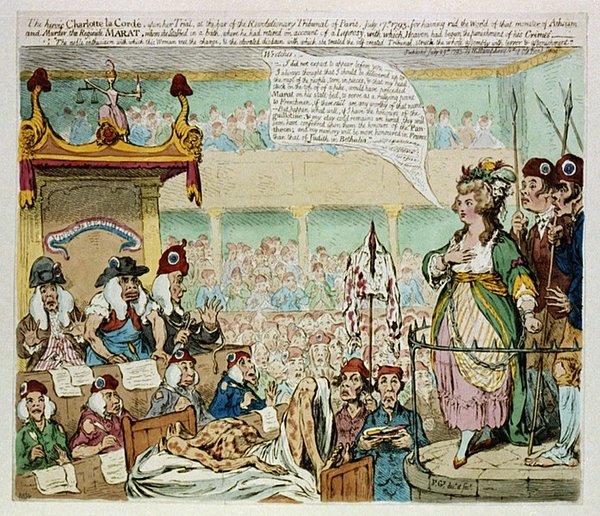 The heroic Charlotte la Cordé, upon her Trial, at the bar of the Revolutionary Tribunal of Paris, July 17th 1793, for having rid the World of that monster of Atheism
and Murder, the Regicide MARAT, whom she Stabbed in a bath, where he had retired on account of a Leprosy, with which, Heaven had begun the punishment of his Crimes.
"The noble enthusiasm with which this Woman met the charge, & the elevated disdain with which she treated the self created Tribunal, struck the whole assembly with terror & astonishment."
Published July 29th 1793, by H. Humphrey
Wretches,
I did not expect to appear before you
I always thought that I should be delivered up to
the rage of the people, torn in pieces, & that my head,
stuck on the top of a pike, would have preceded
Marat on his state bed, to serve as a rallying point
to Frenchmen, if there still are any worthy of that name.
But, happen what will, if I have the honours of the
guillotine, & my clay cold remains are buried, they will
soon have conferred upon them the honours of the Pan
theon; and my memory will be more honoured in France
than that of Judith in Bethulia.